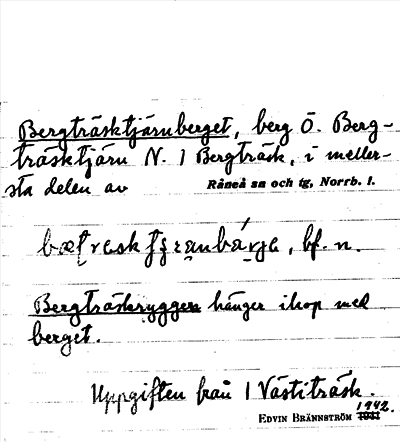 Bergträsktjärnberget, berg Ö. Berg-
träsktjärn N. I Bergträsk, i meller-
sta delen av
Råneå sn och tg, Norrb. l.
bf. n.
Bergträskryggen hänger ihop med
berget.
Uppgiften från I Västiträsk.
EDVIN BRÄNNSTRÖM 1941 1942.